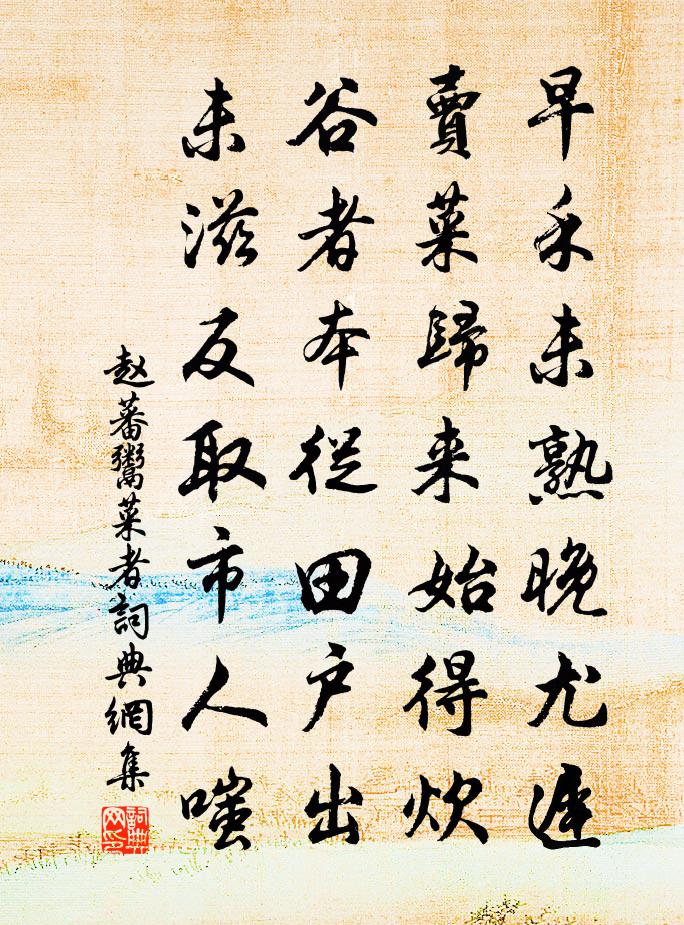 早禾未熟晚尤遲
賣菜歸来始得炊
谷者本從田户出
未滋反取市人嗤
赵蕃鬻菜者詞典網集
詞典网印